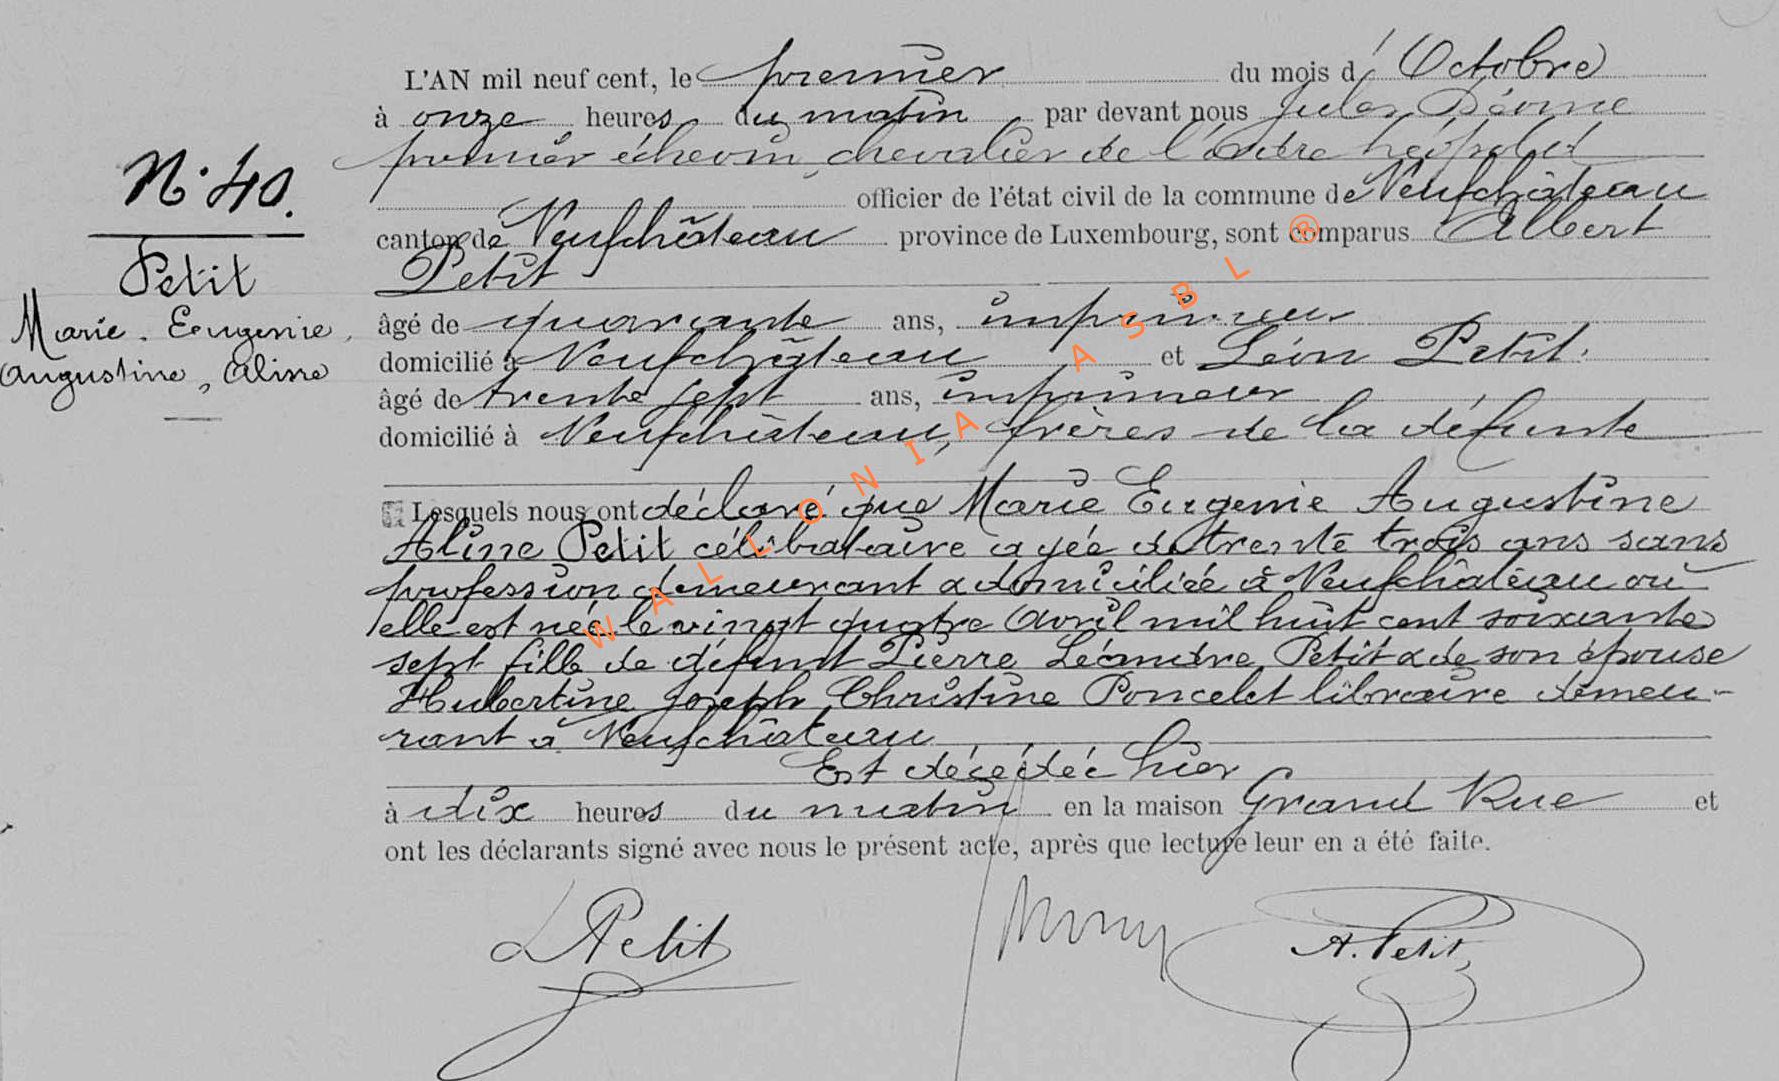 L'AN mil neuf cent, le premier du mois d' Octobre
à onze heures du matin par devant nous Jules
premier échevin, chevalier de l'ordre Léopold
officier de l'état civil de la commune de Neufchâteau
canton de Neufchâteau province de Luxembourg, sont comparus Albert
Petit
âgé de quarante ans, imprimeur
domicilié à Neufchâteau et Léon Petit.
âgé de trente sept ans, imprimeur
domicilié à Neufchâteau, frères de la défunte
Lesquels nous ont déclaré que Marie Eugenie Augustine
Aline Petit célibataire agée de trente trois ans sans
profession demeurant & domiciliée à Neufchâteau où
elle est née le vingt quatre Avril mil huit cent soixante
sept fille de défunt Pierre Léandre Petit & de son épouse
Hubertine Joseph Christine Poncelet libraire demeu-
rant à Neufchâteau
Est décédée hier
à dix heures du matin en la maison Grand Rue et
ont les déclarants signé avec nous le présent acte, après que lecture leur en a été faite.
N° 40.
Petit
Marie. Eugenie,
Augustine, Aline
L Petit
A. Petit
WALLONIA ASBL ®